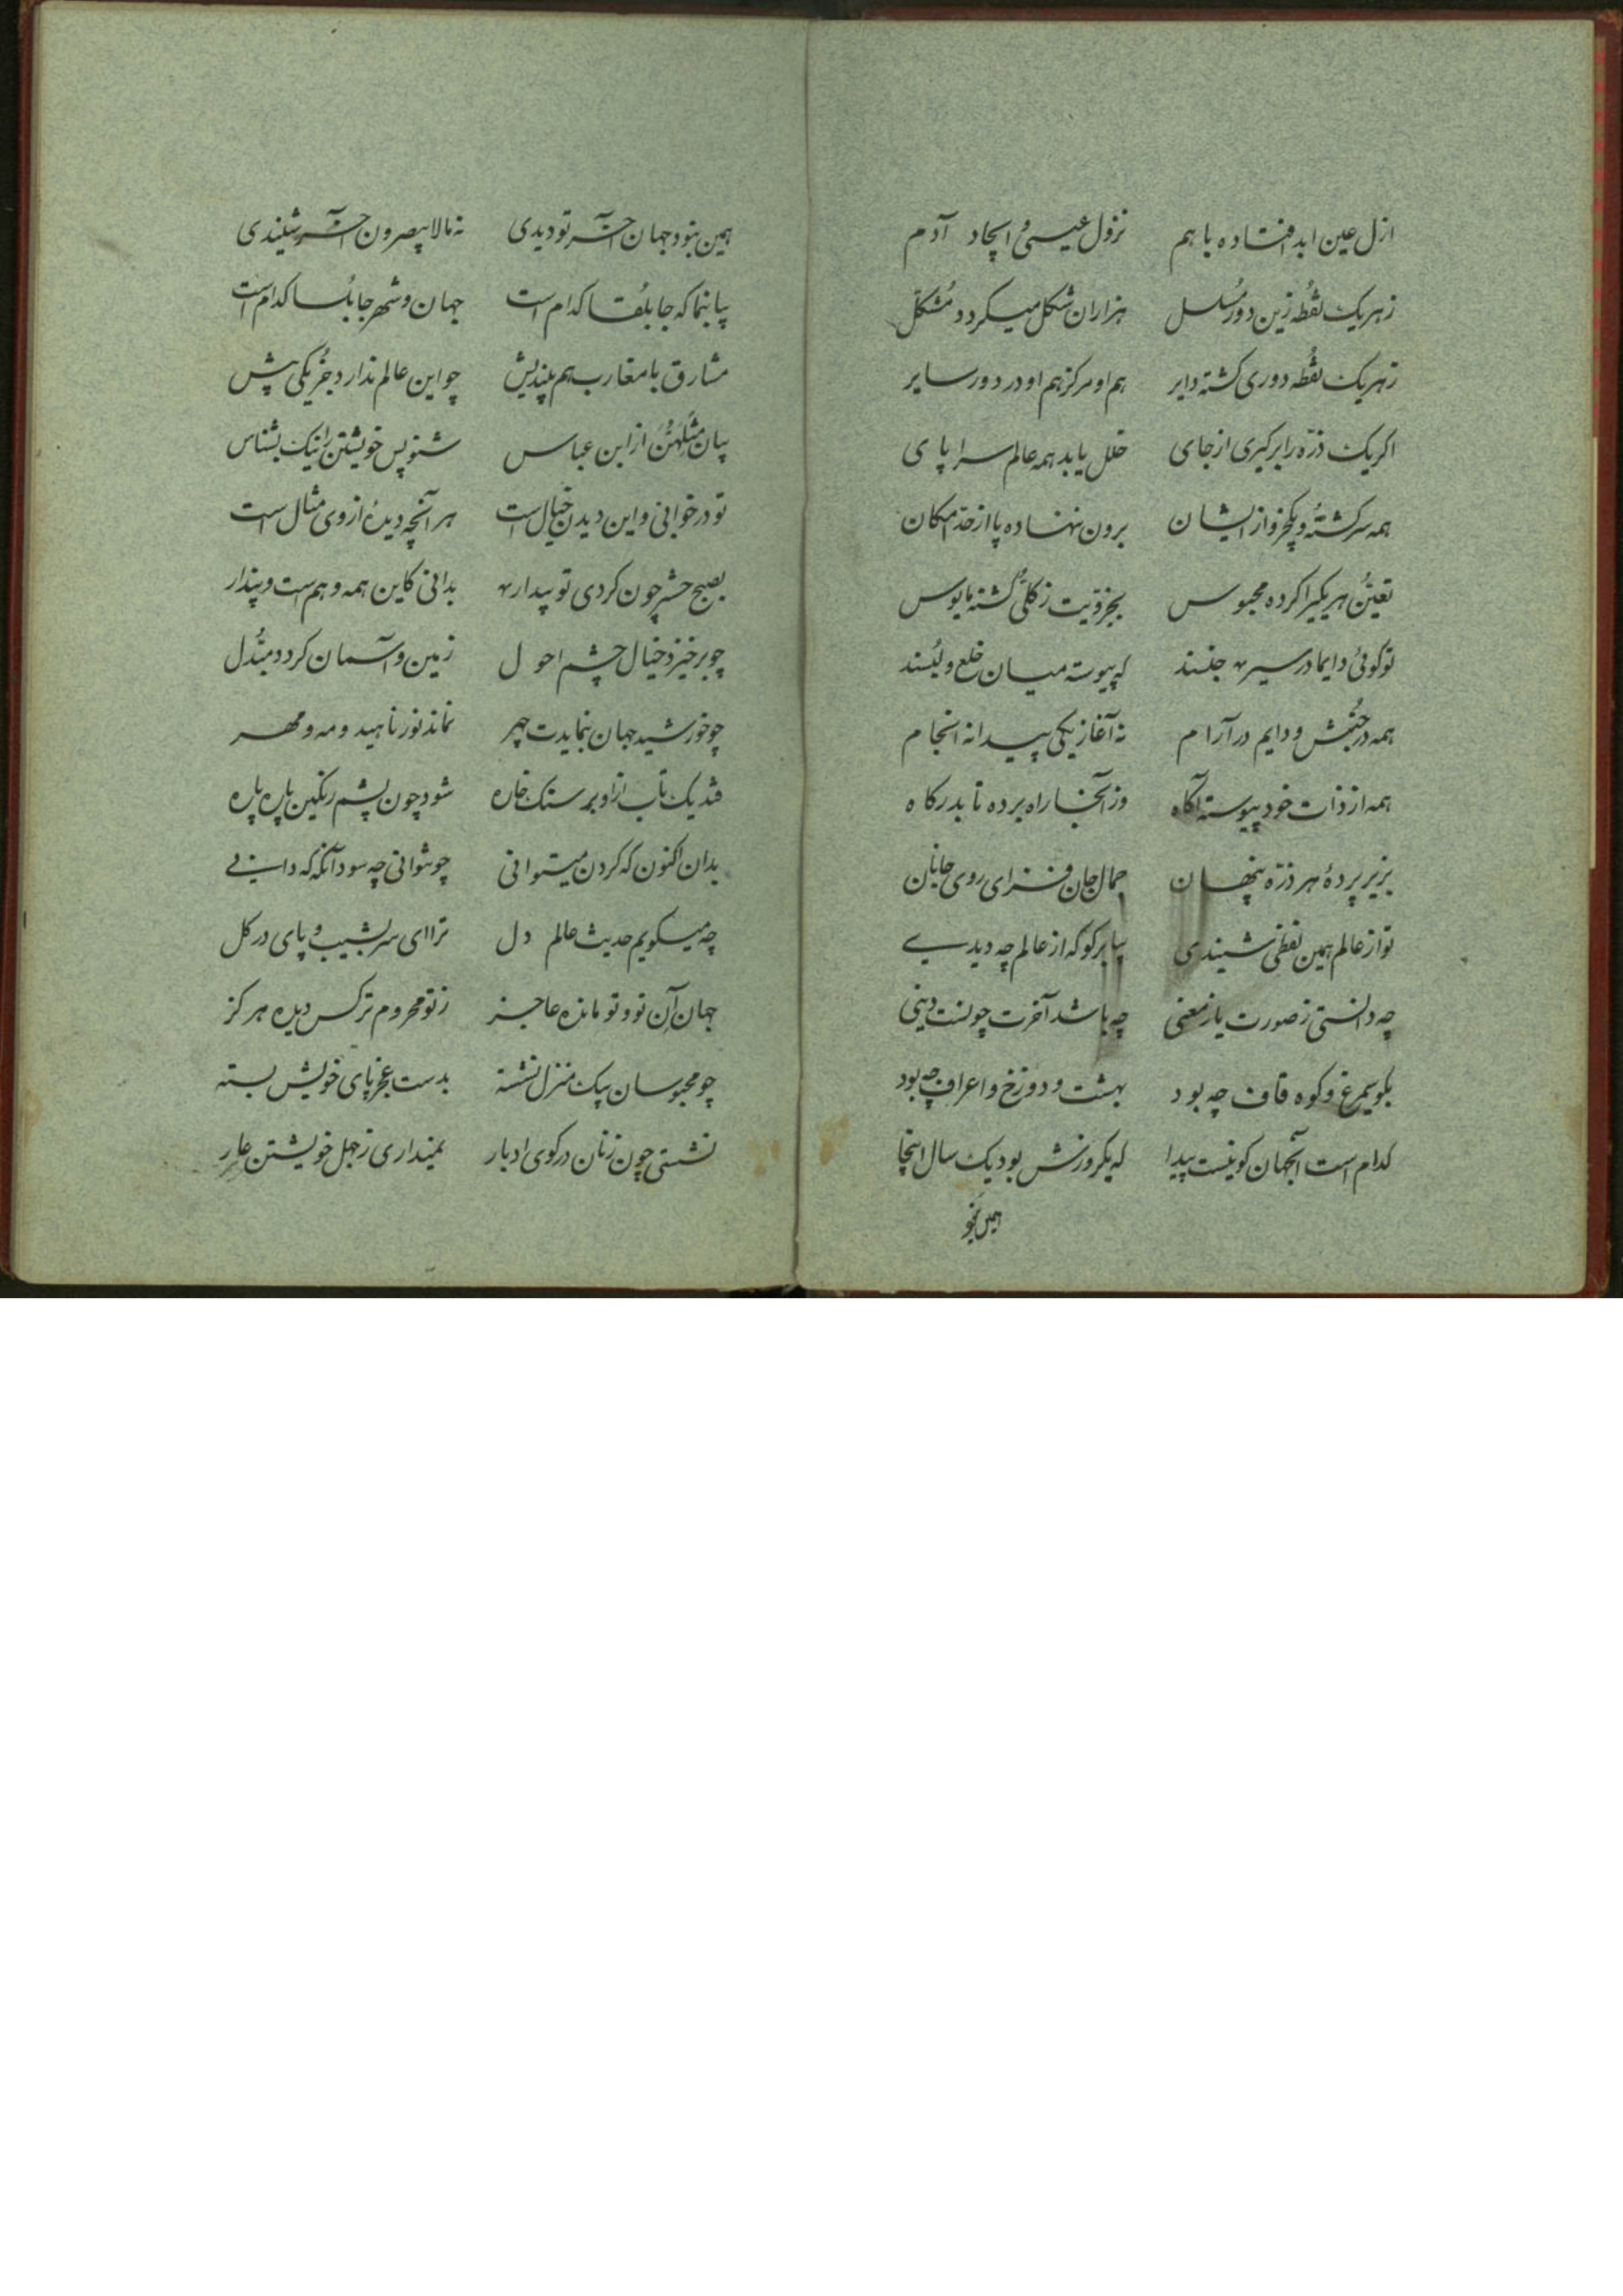 ازل عین ابد افتاده با هم نزول عیسی و ایجاد آدم
زهر یک نقطه زین دور مسلسل هزاران شکل میکردد مشکل
زهر یک نقطه دوری کشته دایر هم او مرکز هم او در دور سایر
اکر یک ذره را برکیری از جای خلل یابد همه عالم سراپای
همه سرکشته و یکجزو از ایشان برون ننهاده پا از حد امکان
تعین هر یکیرا کرده محبوس بجزویت ز کلی کشته مایوس
تو کوئی دایما در سیر و حبسند که پیوسته میان خلع و لبسند
همه در جنبش و دایم در آرام نه آغاز یکی پیدا نه انجام
همه از ذات خود پیوسته آکاه وز آنجا راه برده تا بدرکاه
بزیر پردهٔ هر ذره پنهان جمال جان فزای روی جانان
تو از عالم همین لفظی شنیدی بیا بر کو که از عالم چه دیدی
چه دانستی ز صورت یا ز معنی چه باشد آخرت چونست دینی
بکو سیمرغ و کوه قاف چه بود بهشت و دوزخ و اعراف چه بود
کدام است آنجهان کو نیست پیدا که یکروزش بود یک سال اینجا
همین نبو
همین نبود جهان آخر تو دیدی نه مالا تبصرون آخر شنیدی
بیا بنما که جابلقا کدام است جهان و شهر جابلسا کدام است
مشارق با مغارب هم بیندیش چو این عالم ندارد جز یکی پیش
بیان مثلهن از ابن عباس شنو پس خویشتن را نیک بشناس
تو در خوابی و این دیدن خیال است هر آنچه دیدهٔ از وی مثال است
بصبح حشر چون کردی تو بیدار بدانی کاین همه وهم است و پندار
چو برخیزد خیال چشم احول زمین و آسمان کردد مبدل
چو خورشید جهان بنمایدت چهر نماند نور ناهید و مه و مهر
فتد یک تاب از او بر سنک خاره شود چون پشم رنکین پاره پاره
بدان اکنون که کردن میتوانی چو نتوانی چه سود آنکه که دانی
چه میکویم حدیث عالم دل ترا ای سر بشیب و پای در کل
جهان آن تو و تو مانده عاجز ز تو محروم تر کس دیده هرکز
چو محبوسان بیک منزل نشسته بدست عجز پای خویش بسته
نشستی چون زنان در کوی ادبار نمیداری ز جهل خویشتن عار